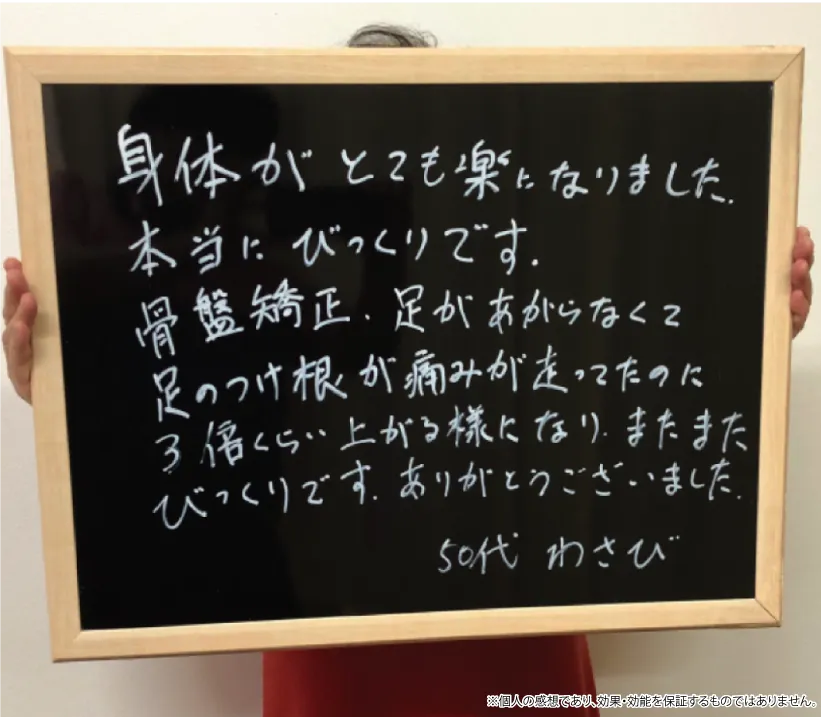 身体がとても楽になりました.
本当にびっくりです.
骨盤矯正.足があがらなくて
足のつけ根が痛みが走ってたのに
3倍くらい上がる様になり.またまた
びっくりです.ありがとうございました.
50代 わさび
※個人の感想であり、効果・効能を保証するものではありません。